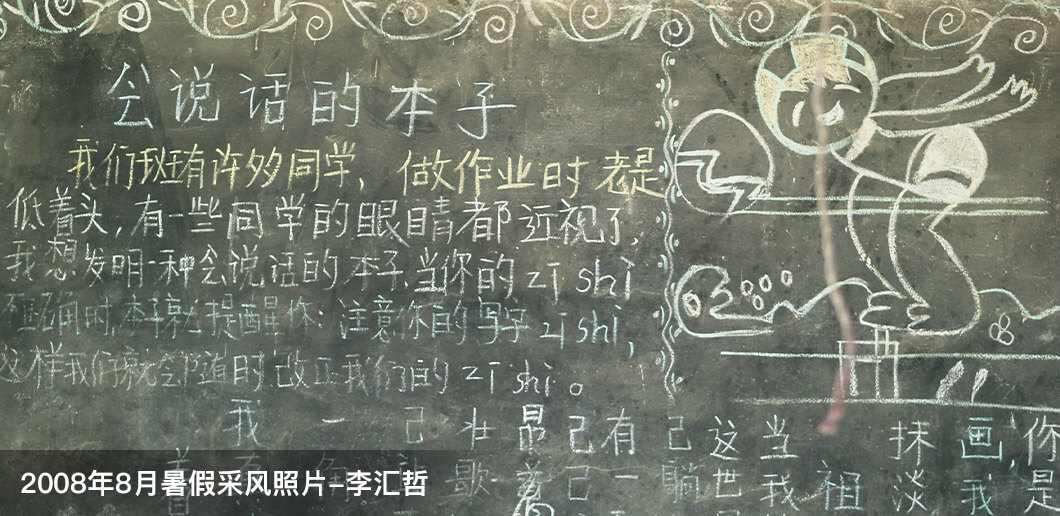 会说话的本子
我们班有许多同学,做作业时老是
低着头,有一些同学的眼睛都近视了,
我想发明一种会说话的本子,当你的zī shì
不正确时,本子就提醒你:注意你的写字zī shì,
这样我们就会随时改正我们的zī shì。
我 一 己 壮 昂 己 有 己 这 当 抹 画, 你
着 歌 着 己 一 躺 世 我 祖 淡 我 是
2008年8月暑假采风照片-李汇哲